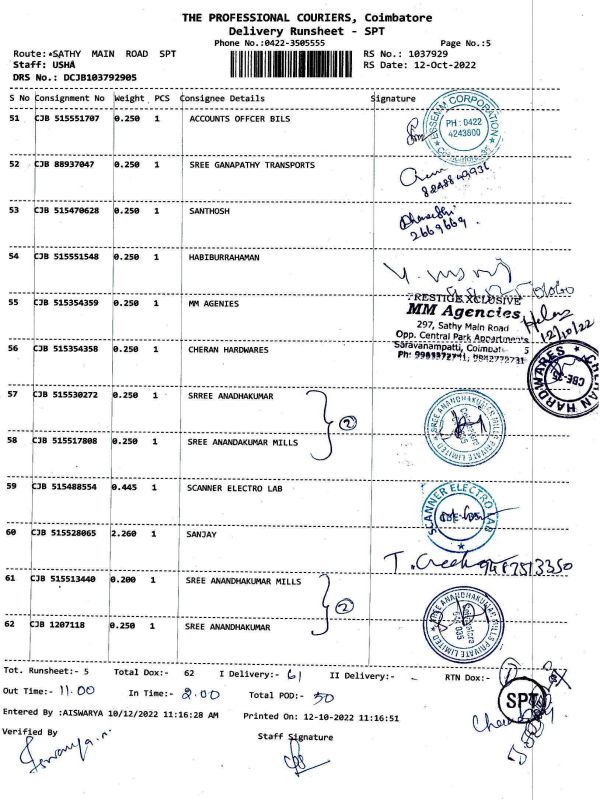 THE PROFESSIONAL COURIERS, Coimbatore
Delivery Runsheet - SPT
Phone No.:0422-3505555 Page No.:5
Route:*SATHY MAIN ROAD SPT RS No.: 1037929
Staff: USHA RS Date: 12-Oct-2022
DRS No.: DCJB103792905
S No Consignment No Weight PCS Consignee Details Signature
51 CJB 515551707 0.250 1 ACCOUNTS OFFCER BILS
ESSENM CORPORATION
PH : 0422
4243800
52 CJB 88937047 0.250 1 SREE GANAPATHY TRANSPORTS
53 CJB 515470628 0.250 1 SANTHOSH
2669669
54 CJB 515551548 0.250 1 HABIBURRAHAMAN
55 CJB 515354359 0.250 1 MM AGENIES
PRESTIGE XCLUSIVE
MM Agencies
297, Sathy Main Road
Opp. Central Park Appartments
Saravanampatti, Coimbat
Helen
12/10/22
56 CJB 515354358 0.250 1 CHERAN HARDWARES
CHERAN HARDWARES
CBE-35
57 CJB 515530272 0.250 1 SRREE ANADHAKUMAR
2
SREE ANANDHAKUMAR MILLS PRIVATE LIMITED
58 CJB 515517808 0.250 1 SREE ANANDAKUMAR MILLS
59 CJB 515488554 0.445 1 SCANNER ELECTRO LAB
SCANNER ELECTRO LAB
60 CJB 515528065 2.260 1 SANJAY
61 CJB 515513440 0.200 1 SREE ANANDHAKUMAR MILLS
2
SREE ANANDHAKUMAR MILLS PRIVATE LIMITED
62 CJB 1207118 0.250 1 SREE ANANDHAKUMAR
Tot. Runsheet:- 5 Total Dox:- 62 I Delivery:- 61 II Delivery:- RTN Dox:- 1
Out Time:- 11.00 In Time:- 2.00 Total POD:- 50
SPT
Entered By :AISWARYA 10/12/2022 11:16:28 AM Printed On: 12-10-2022 11:16:51
Verified By Staff Signature